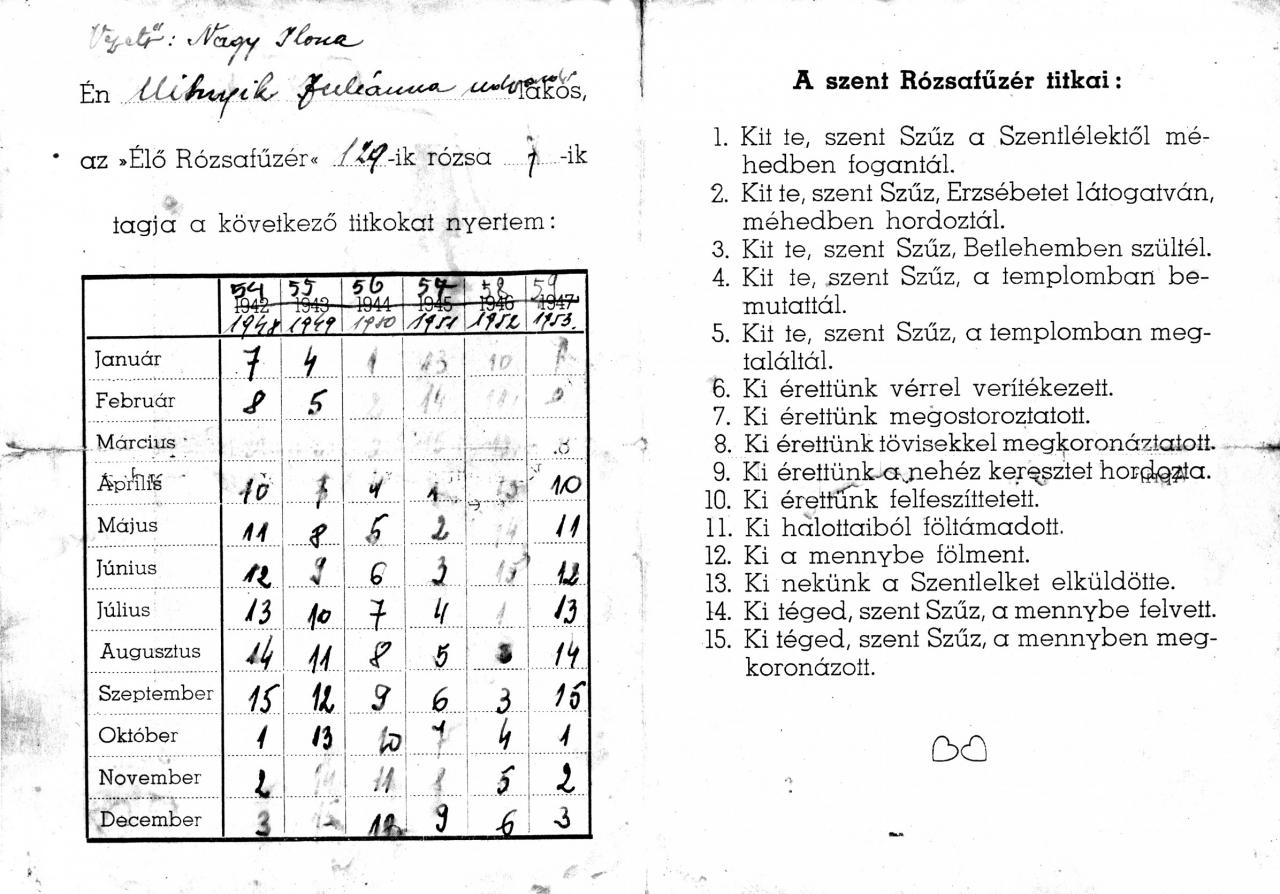 Vezető: Nagy Ilona
Én Juliánna lakós,
az »Élő Rózsafűzér« 129-ik rózsa 7-ik
tagja a következő titkokat nyertem:
54 55 56 57 58 59
1942 1943 1944 1945 1946 1947
1948 1949 1950 1951 1952 1953.
Január 7 4 1 13 10 7
Február 8 5 2 14 11
Március 3 8
Április 10 7 4 1 13 10
Május 11 8 5 2 14 11
Június 12 9 6 3 15 12
Július 13 10 7 4 1 13
Augusztus 14 11 8 5 14
Szeptember 15 12 9 6 3 15
Október 1 13 10 7 4 1
November 2 14 11 8 5 2
December 3 15 12 9 6 3
A szent Rózsafűzér titkai:
1. Kit te, szent Szűz a Szentlélektől mé-
hedben fogantál.
2. Kit te, szent Szűz, Erzsébetet látogatván,
méhedben hordoztál.
3. Kit te, szent Szűz, Betlehemben szültél.
4. Kit te, szent Szűz, a templomban be-
mutattál.
5. Kit te, szent Szűz, a templomban meg-
találtál.
6. Ki érettünk vérrel verítékezett.
7. Ki érettünk megostoroztatott.
8. Ki érettünk tövisekkel megkoronáztatott.
9. Ki érettünk a nehéz keresztet hordozta.
10. Ki érettünk felfeszíttetett.
11. Ki halottaiból föltámadott.
12. Ki a mennybe fölment.
13. Ki nekünk a Szentlelket elküldötte.
14. Ki téged, szent Szűz, a mennybe felvett.
15. Ki téged, szent Szűz, a mennyben meg-
koronázott.